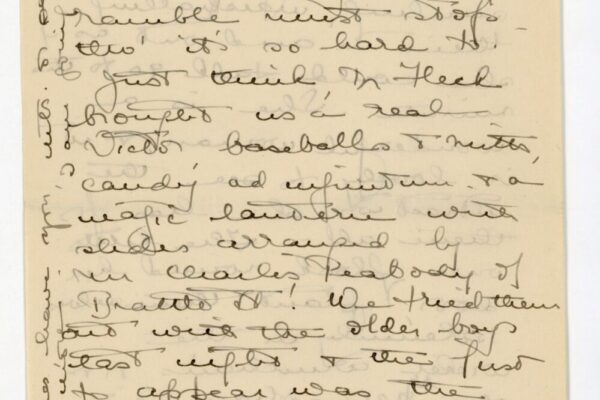 ramble must stop
tho' it's so hard to.
Just think Mr Heck
brought us a real
Victor baseballs & mitts,
candy ad infinitum & a
magic lantern with
slides arranged by
Mr Charles Peabody of
Brattle St! We tried them
out with the older boys
last night & the first
to appear was the